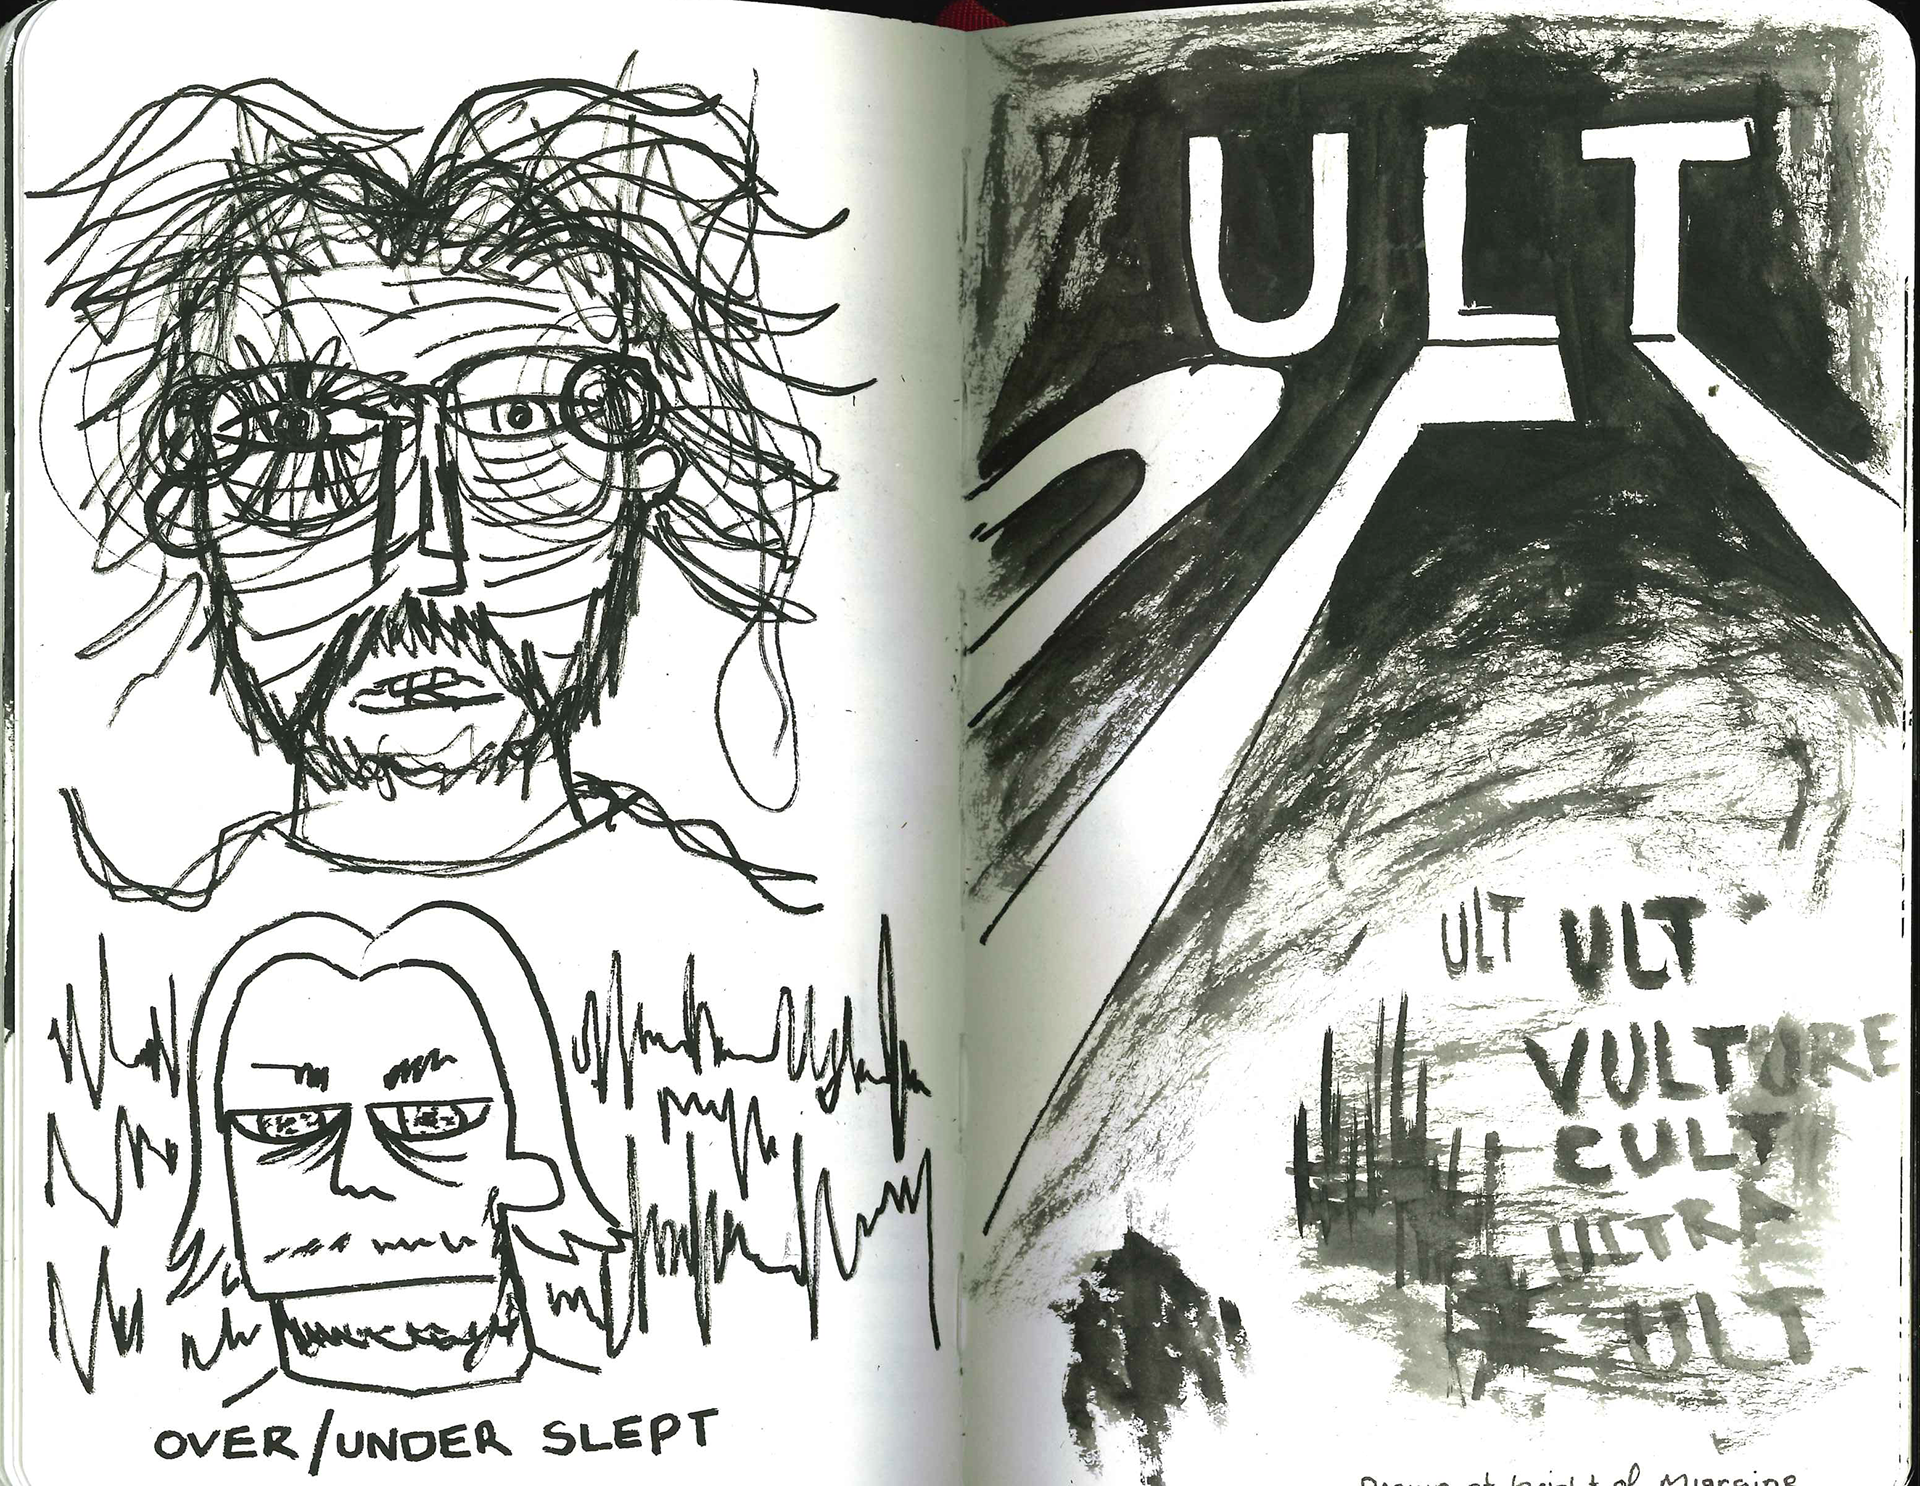 OVER/UNDER SLEPT
ULT
ULT ULT
VULTURE
CULT
ULTRA
ULT
Drawn at height of Migraine